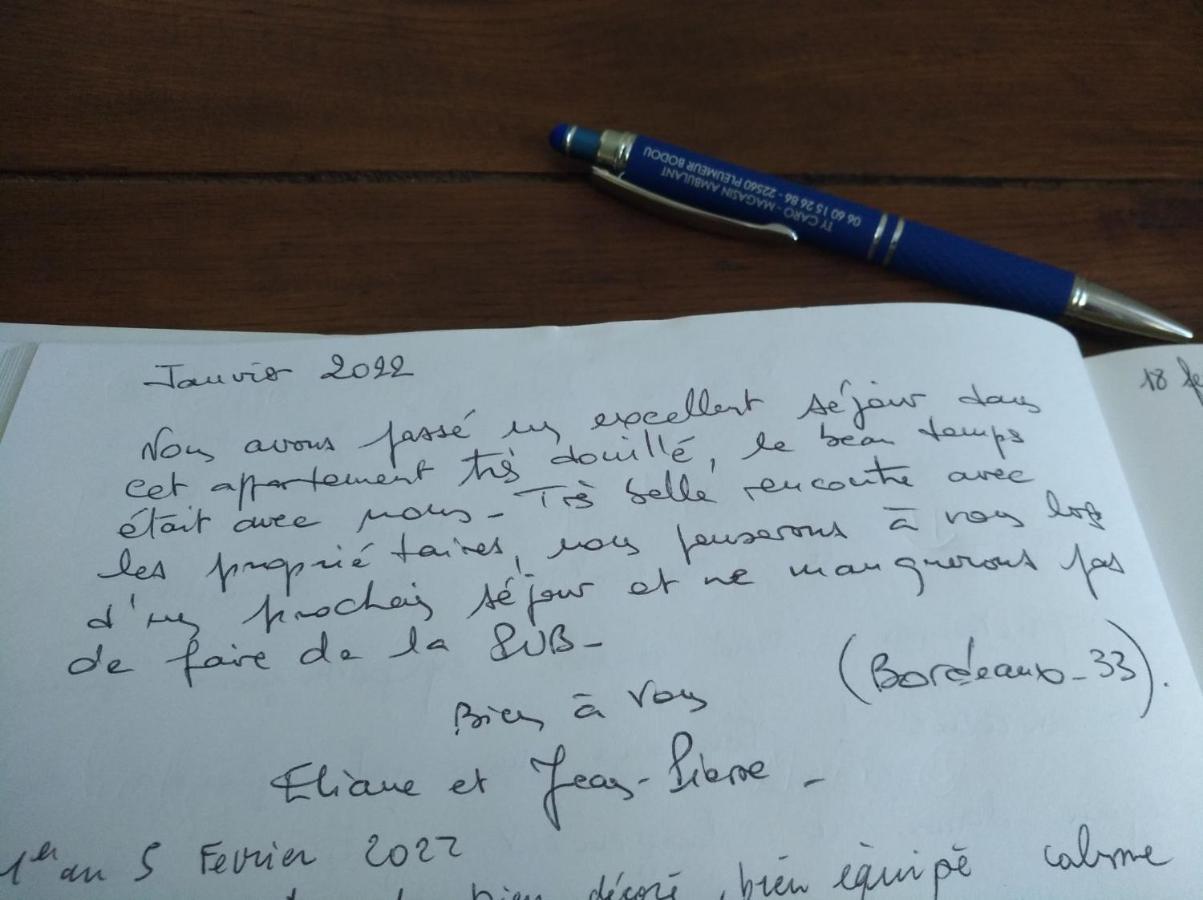 06 60 15 26 86 - 22560 PLEUMEUR BODOU
TY CARO - MAGASIN AMBULANT
Janvier 2022
Nous avons passé un excellent séjour dans
cet appartement très douillé, le beau temps
était avec nous - Très belle rencontre avec
les propriétaires, nous penserons à vous lors
d'un prochain séjour et ne manquerons pas
de faire de la PUB -
(Bordeaux - 33).
Bien à vous
Eliane et Jean-Pierre -
1er au 5 Fevrier 2022
bien décoré, bien équipé calme
18